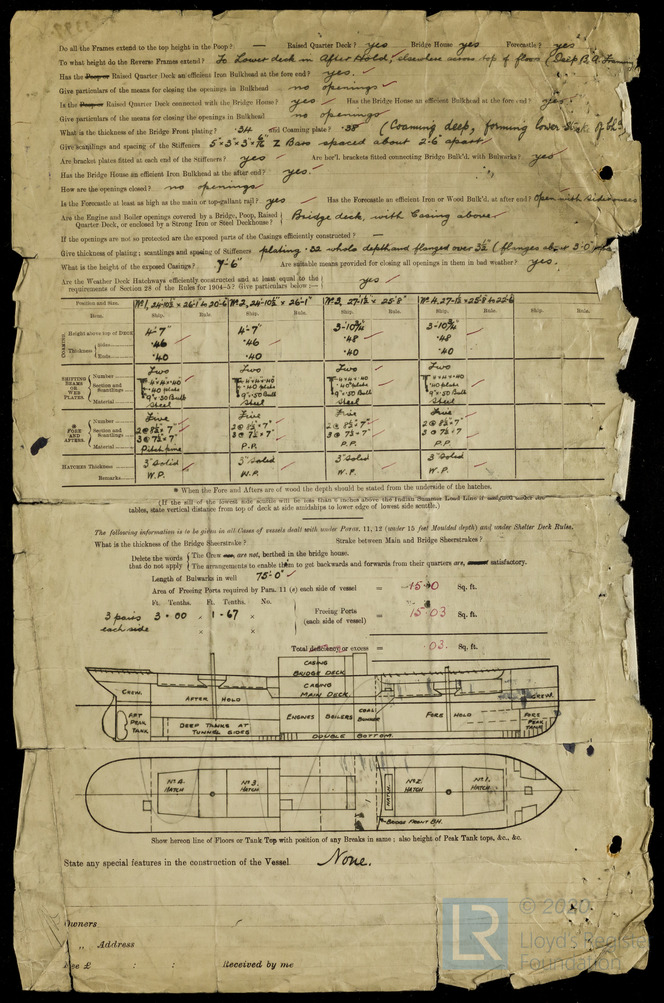 Do all the Frames extend to the top height in the Poop? — Raised Quarter Deck? yes Bridge House yes Forecastle? yes
To what height do the Reverse Frames extend? To Lower deck in After Hold, elsewhere across top of floors (Deep B.A. Framing)
Has the Poop or Raised Quarter Deck an efficient Iron Bulkhead at the fore end? yes.
Give particulars of the means for closing the openings in Bulkhead no openings
Is the Poop or Raised Quarter Deck connected with the Bridge House? yes Has the Bridge House an efficient Bulkhead at the fore end? yes.
Give particulars of the means for closing the openings in Bulkhead no openings
What is the thickness of the Bridge Front plating? .34 and Coaming plate? .38 (Coaming deep, forming lower strake of
Give scantlings and spacing of the Stiffeners Z Bars spaced about 2-6 apart
Are bracket plates fitted at each end of the Stiffeners? yes Are hor'l. brackets fitted connecting Bridge Bulk'd. with Bulwarks? yes
Has the Bridge House an efficient Iron Bulkhead at the after end? yes.
How are the openings closed? no openings
Is the Forecastle at least as high as the main or top-gallant rail? yes Has the Forecastle an efficient Iron or Wood Bulk'd. at after end? Open with sidehouses
Are the Engine and Boiler openings covered by a Bridge, Poop, Raised
Quarter Deck, or enclosed by a Strong Iron or Steel Deckhouse? Bridge deck, with Casing above
If the openings are not so protected are the exposed parts of the Casings efficiently constructed? —
Give thickness of plating; scantlings and spacing of Stiffeners plating .32 whole depth and flanged over 3½" (flanges about 3-0"
What is the height of the exposed Casings? 7-6" Are suitable means provided for closing all openings in them in bad weather? yes.
Are the Weather Deck Hatchways efficiently constructed and at least equal to the
requirements of Section 28 of the Rules for 1904-5? Give particulars below:— yes
Position and Size. No 1, 24-10½ × 26-1 to 20-6 No 2, 24-10½" × 26-1" No 3, 27-1½ × 25-8" No 4, 27-1½ × 25-8 to 22-6
Item. Ship. Rule. Ship. Rule. Ship. Rule. Ship. Rule.
COAMING Height above top of DECK 4-7" 4-7" 3-10¾" 3-10¾"
Thickness Sides .46 .46 .48 .48
Ends .40 .40 .40 .40
SHIFTING BEAMS OR WEB PLATES. Number Two Two Two Two
Section and Scantlings 4×4×.40 4×4×.40 4×4×.40 4×4×.40
.40 plate .40 plate .40 plate .40 plate
9"×.50 Bulb 9"×.50 Bulb 9"×.50 Bulb 9"×.50 Bulb
Material Steel Steel Steel Steel
* FORE AND AFTERS. Number Five Five Five Five
Section and Scantlings 2@8½×7" 2@8½×7" 2@8½×7" 2@8½×7"
3@7½×7" 3@7½×7" 3@7½×7" 3@7½×7"
Material Pitch pine P.P. P.P. P.P.
HATCHES Thickness 3" Solid 3" Solid 3" Solid 3" Solid
Remarks W.P. W.P. W.P. W.P.
* When the Fore and Afters are of wood the depth should be stated from the underside of the hatches.
(If the sill of the lowest side scuttle will be less than 6 inches above the Indian Summer Load Line if assigned under the
tables, state vertical distance from top of deck at side amidships to lower edge of lowest side scuttle.)
The following information is to be given in all Cases of vessels dealt with under Paras. 11, 12 (under 15 feet Moulded depth) and under Shelter Deck Rules.
What is the thickness of the Bridge Sheerstrake? Strake between Main and Bridge Sheerstrakes?
Delete the words that do not apply
The Crew are, are not, berthed in the bridge house.
The arrangements to enable them to get backwards and forwards from their quarters are, are not satisfactory.
Length of Bulwarks in well 75-0"
Area of Freeing Ports required by Para. 11 (s) each side of vessel = 15.0 Sq. ft.
Ft. Tenths. Ft. Tenths. No.
3 pairs each side 3.00 × 1.67 ×
× ×
Freeing Ports (each side of vessel) = 15.03 Sq. ft.
Total deficiency or excess = .03. Sq. ft.
CASING
BRIDGE DECK
CASING
MAIN DECK
CREW.
AFTER HOLD
ENGINES BOILERS
COAL BUNKER
FORE HOLD
CREW.
AFT PEAK TANK
DEEP TANKS AT TUNNEL SIDES
DOUBLE BOTTOM.
FORE PEAK TANK
No 4. HATCH
No 3. HATCH
HATCH
No 2. HATCH
No 1. HATCH
BRIDGE FRONT BH.
Show hereon line of Floors or Tank Top with position of any Breaks in same; also height of Peak Tank tops, &c., &c.
State any special features in the construction of the Vessel. None.
Owners
„ Address
Fee £ : : Received by me
LR
© 2020
Lloyd's Register
Foundation